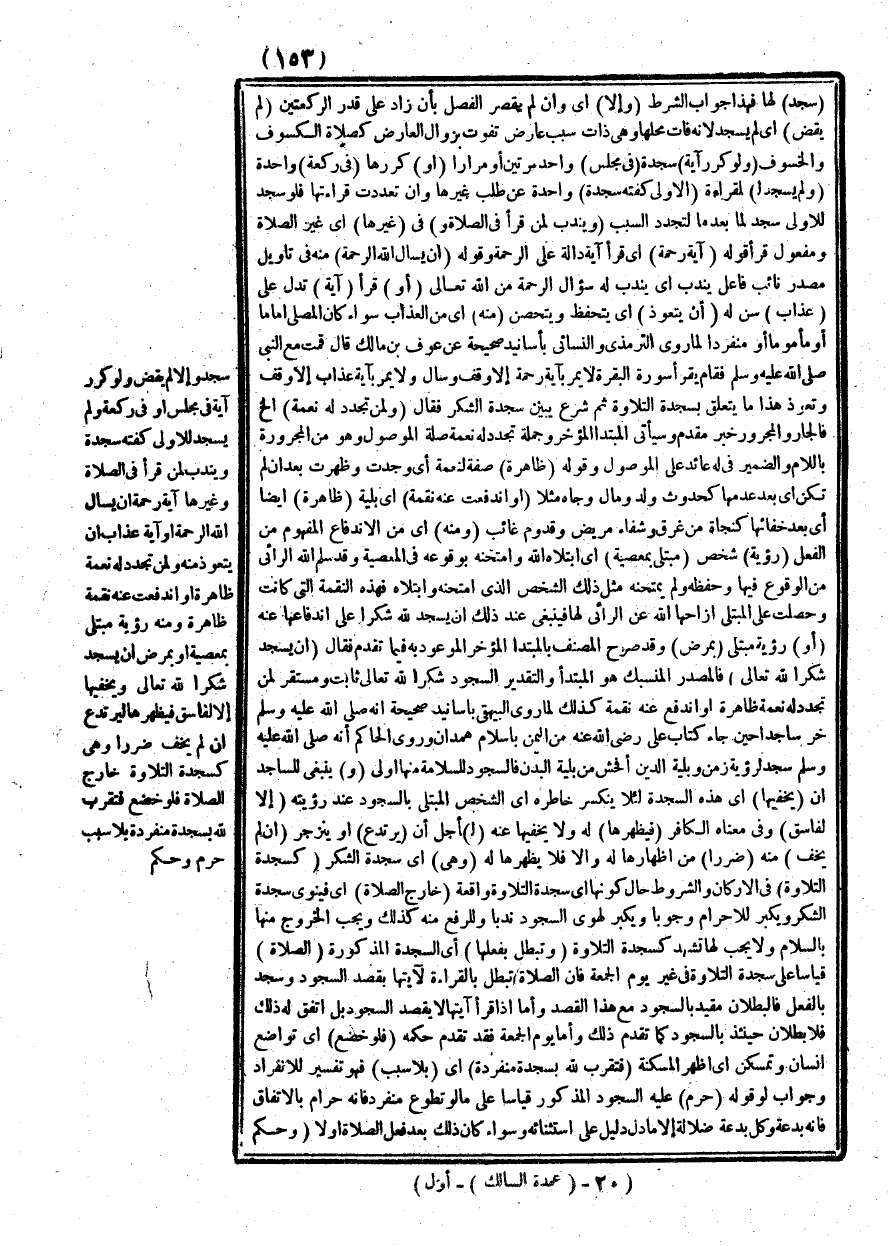 (١٥٣)
(سجد) لها فهذا جواب الشرط (وإلا) اى وان لم يقصر الفصل بأن زاد على قدر الركعتين (لم
يقض) اى لم يسجد لانه فات محلها وهى ذات سبب عارض تفوت بزوال العارض كصلاة الكسوف
والخسوف (ولو كرر آية) سجدة (فى مجلس) واحد مرتين أو مرارا (او) كررها (فى ركعة) واحدة
(ولم يسجد ا) لقراءة (الاولى كفته سجدة) واحدة عن طلب غيرها وان تعددت قراءتها فلو سجد
للاولى سجد لما بعدها لتجدد السبب (ويندب لمن قرأ فى الصلاة و) فى (غيرها) اى غير الصلاة
ومفعول قرأ قوله (آية رحمة) اى قرأ آية دالة على الرحمة وقوله (ان يسال الله الرحمة) منه فى تاويل
مصدر نائب فاعل يندب اى يندب له سؤال الرحمة من الله تعالى (أو) قرأ (آية) تدل على
(عذاب) سن له (أن يتعوذ) اى يتحفظ ويتحصن (منه) اى من العذاب سواء كان المصلى اماما
أو مأموما أو منفردا لما روى الترمذى والنسائى بأسانيد صحيحة عن عوف بن مالك قال قمت مع النبى
صلى الله عليه وسلم فقام يقرأ سورة البقرة لا يمر بآية رحمة إلا وقف وسال ولا يمر بآية عذاب إلا وقف
وتعوذ هذا ما يتعلق بسجدة التلاوة ثم شرع يبين سجدة الشكر فقال (ولمن تجدد له نعمة) الخ
فالجار والمجرور خبر مقدم وسيأتى المبتدا المؤخر وجملة تجدد له نعمة صلة الموصول وهو من المجرورة
باللام والضمير فى له عائد على الموصول وقوله (ظاهرة) صفة لنعمة أى وجدت وظهرت بعد ان لم
تكن اى بعد عدمها كحدوث ولد ومال وجاه مثلا (او اندفعت عنه نقمة) اى بلية (ظاهرة) ايضا
أى بعد خفائها كنجاة من غرق وشفاء مريض وقدوم غائب (ومنه) اى من الاندفاع المفهوم من
الفعل (رؤية) شخص (مبتلى بمعصية) اى ابتلاه الله وامتحنه بوقوعه فى المعصية وقد سلم الله الرائى
من الوقوع فيها وحفظه ولم يمتحنه مثل ذلك الشخص الذى امتحنه وابتلاه فهذه النقمة التى كانت
وحصلت على المبتلى ازاحها الله عن الرائى لها فينبغى عند ذلك ان يسجد لله شكرا على اندفاعها عنه
(أو) رؤية مبتلى (بمرض) وقد صرح المصنف بالمبتدا المؤخر الموعود به فيما تقدم فقال (ان يسجد
شكرا لله تعالى) فالمصدر المنسبك هو المبتدأ والتقدير السجود شكرا لله تعالى ثابت ومستقر لمن
تجدد له نعمة ظاهرة او اندفع عنه نقمة كذلك لما روى البيهقى باسانيد صحيحة انه صلى الله عليه وسلم
خر ساجدا حين جاءه كتاب على رضى الله عنه من اليمن باسلام همدان وروى الحاكم أنه صلى الله عليه
وسلم سجد لرؤية زمن وبلية الدين أفحش من بلية البدن فالسجود للسلامة منها اولى (و) ينبغى للساجد
ان (يخفيها) اى هذه السجدة لئلا ينكسر خاطره اى الشخص المبتلى بالسجود عند رؤيته (إلا
لفاسق) وفى معناه الكافر (فيظهرها) له ولا يخفيها عنه (ا)أجل أن (يرتدع) او ينزجر (ان لم
يخف) منه (ضررا) من اظهارها له والا فلا يظهرها له (وهى) اى سجدة الشكر (كسجدة
التلاوة) فى الاركان والشروط حال كونها اى سجدة التلاوة واقعة (خارج الصلاة) اى فينوى سجدة
الشكر ويكبر للاحرام وجوبا ويكبر لهوى السجود ندبا وللرفع منه كذلك ويجب الخروج منها
بالسلام ولا يجب لها تشهد كسجدة التلاوة (وتبطل بفعلها) أى السجدة المذكورة (الصلاة)
قياسا على سجدة التلاوة فى غير يوم الجمعة فان الصلاة تبطل بالقراءة لآيتها بقصد السجود وسجد
بالفعل فالبطلان مقيد بالسجود مع هذا القصد وأما اذا قرأ آيتها لا بقصد السجود بل اتفق له ذلك
فلا بطلان حينئذ بالسجود كما تقدم ذلك وأما يوم الجمعة فقد تقدم حكمه (فلو خضع) اى تواضع
انسان وتمسكن اى اظهر المسكنة (فتقرب لله بسجدة منفردة) اى (بلا سبب) فهو تفسير للانفراد
وجواب لو قوله (حرم) عليه السجود المذكور قياسا على ما لو تطوع منفرد فانه حرام بالاتفاق
فانه بدعة وكل بدعة ضلالة إلا ما دل دليل على استثنائه وسواء كان ذلك بعد فعل الصلاة او لا (وحكم
سجد وإلا لم يقض ولو كرر
آية فى مجلس او فى ركعة ولم
يسجد للاولى كفته سجدة
ويندب لمن قرأ فى الصلاة
وغيرها آية رحمة ان يسال
الله الرحمة او آية عذاب ان
يتعوذ منه ولمن تجدد له نعمة
ظاهرة او اندفعت عنه نقمة
ظاهرة ومنه رؤية مبتلى
بمعصية او بمرض ان يسجد
شكرا لله تعالى ويخفيها
إلا لفاسق فيظهرها ليرتدع
ان لم يخف ضررا وهى
كسجدة التلاوة خارج
الصلاة فلو خضع فتقرب
لله بسجدة منفردة بلا سبب
حرم وحكم
(٢٠ - (عمدة السالك) - أول)